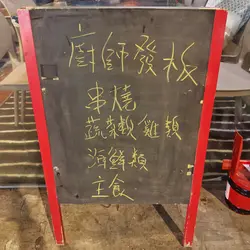 廚師發板
串燒
蔬 雞類
海鮮類
主食